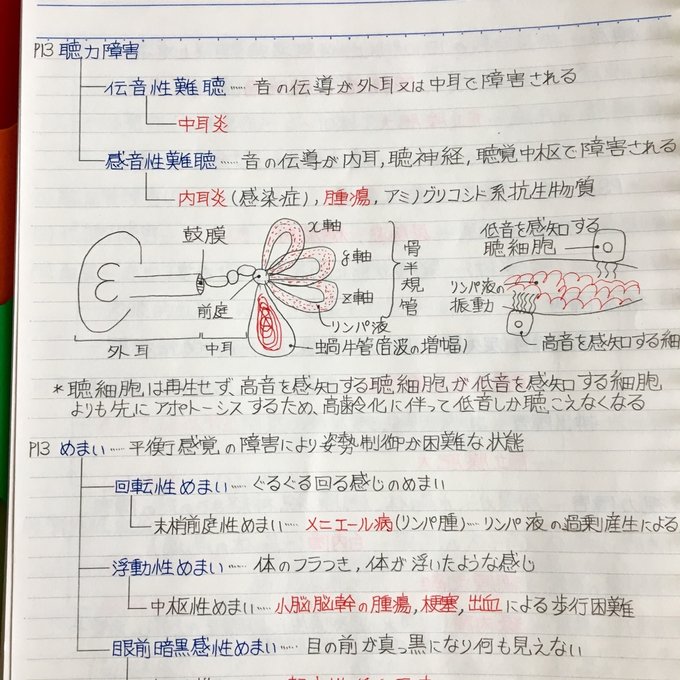 P13 聴力障害
伝音性難聴……音の伝導が外耳又は中耳で障害される
中耳炎
感音性難聴……音の伝導が内耳,聴神経,聴覚中枢で障害される
内耳炎(感染症),腫瘍,アミノグリコシド系抗生物質
鼓膜
前庭
外耳
中耳
x軸
y軸
z軸
骨半規管
リンパ液
蝸牛管(音波の増幅)
低音を感知する
聴細胞
リンパ液の
振動
高音を感知する細
*聴細胞は再生せず、高音を感知する聴細胞が低音を感知する細胞
よりも先にアポトーシスするため、高齢化に伴って低音しか聴こえなくなる
P13 めまい……平衡感覚の障害により姿勢制御が困難な状態
回転性めまい……ぐるぐる回る感じのめまい
末梢前庭性めまい……メニエール病(リンパ腫)…リンパ液の過剰産生による
浮動性めまい……体のフラつき,体が浮いたような感じ
中枢性めまい……小脳脳幹の腫瘍,梗塞,出血による歩行困難
眼前暗黒感性めまい……目の前が真っ黒になり何も見えない